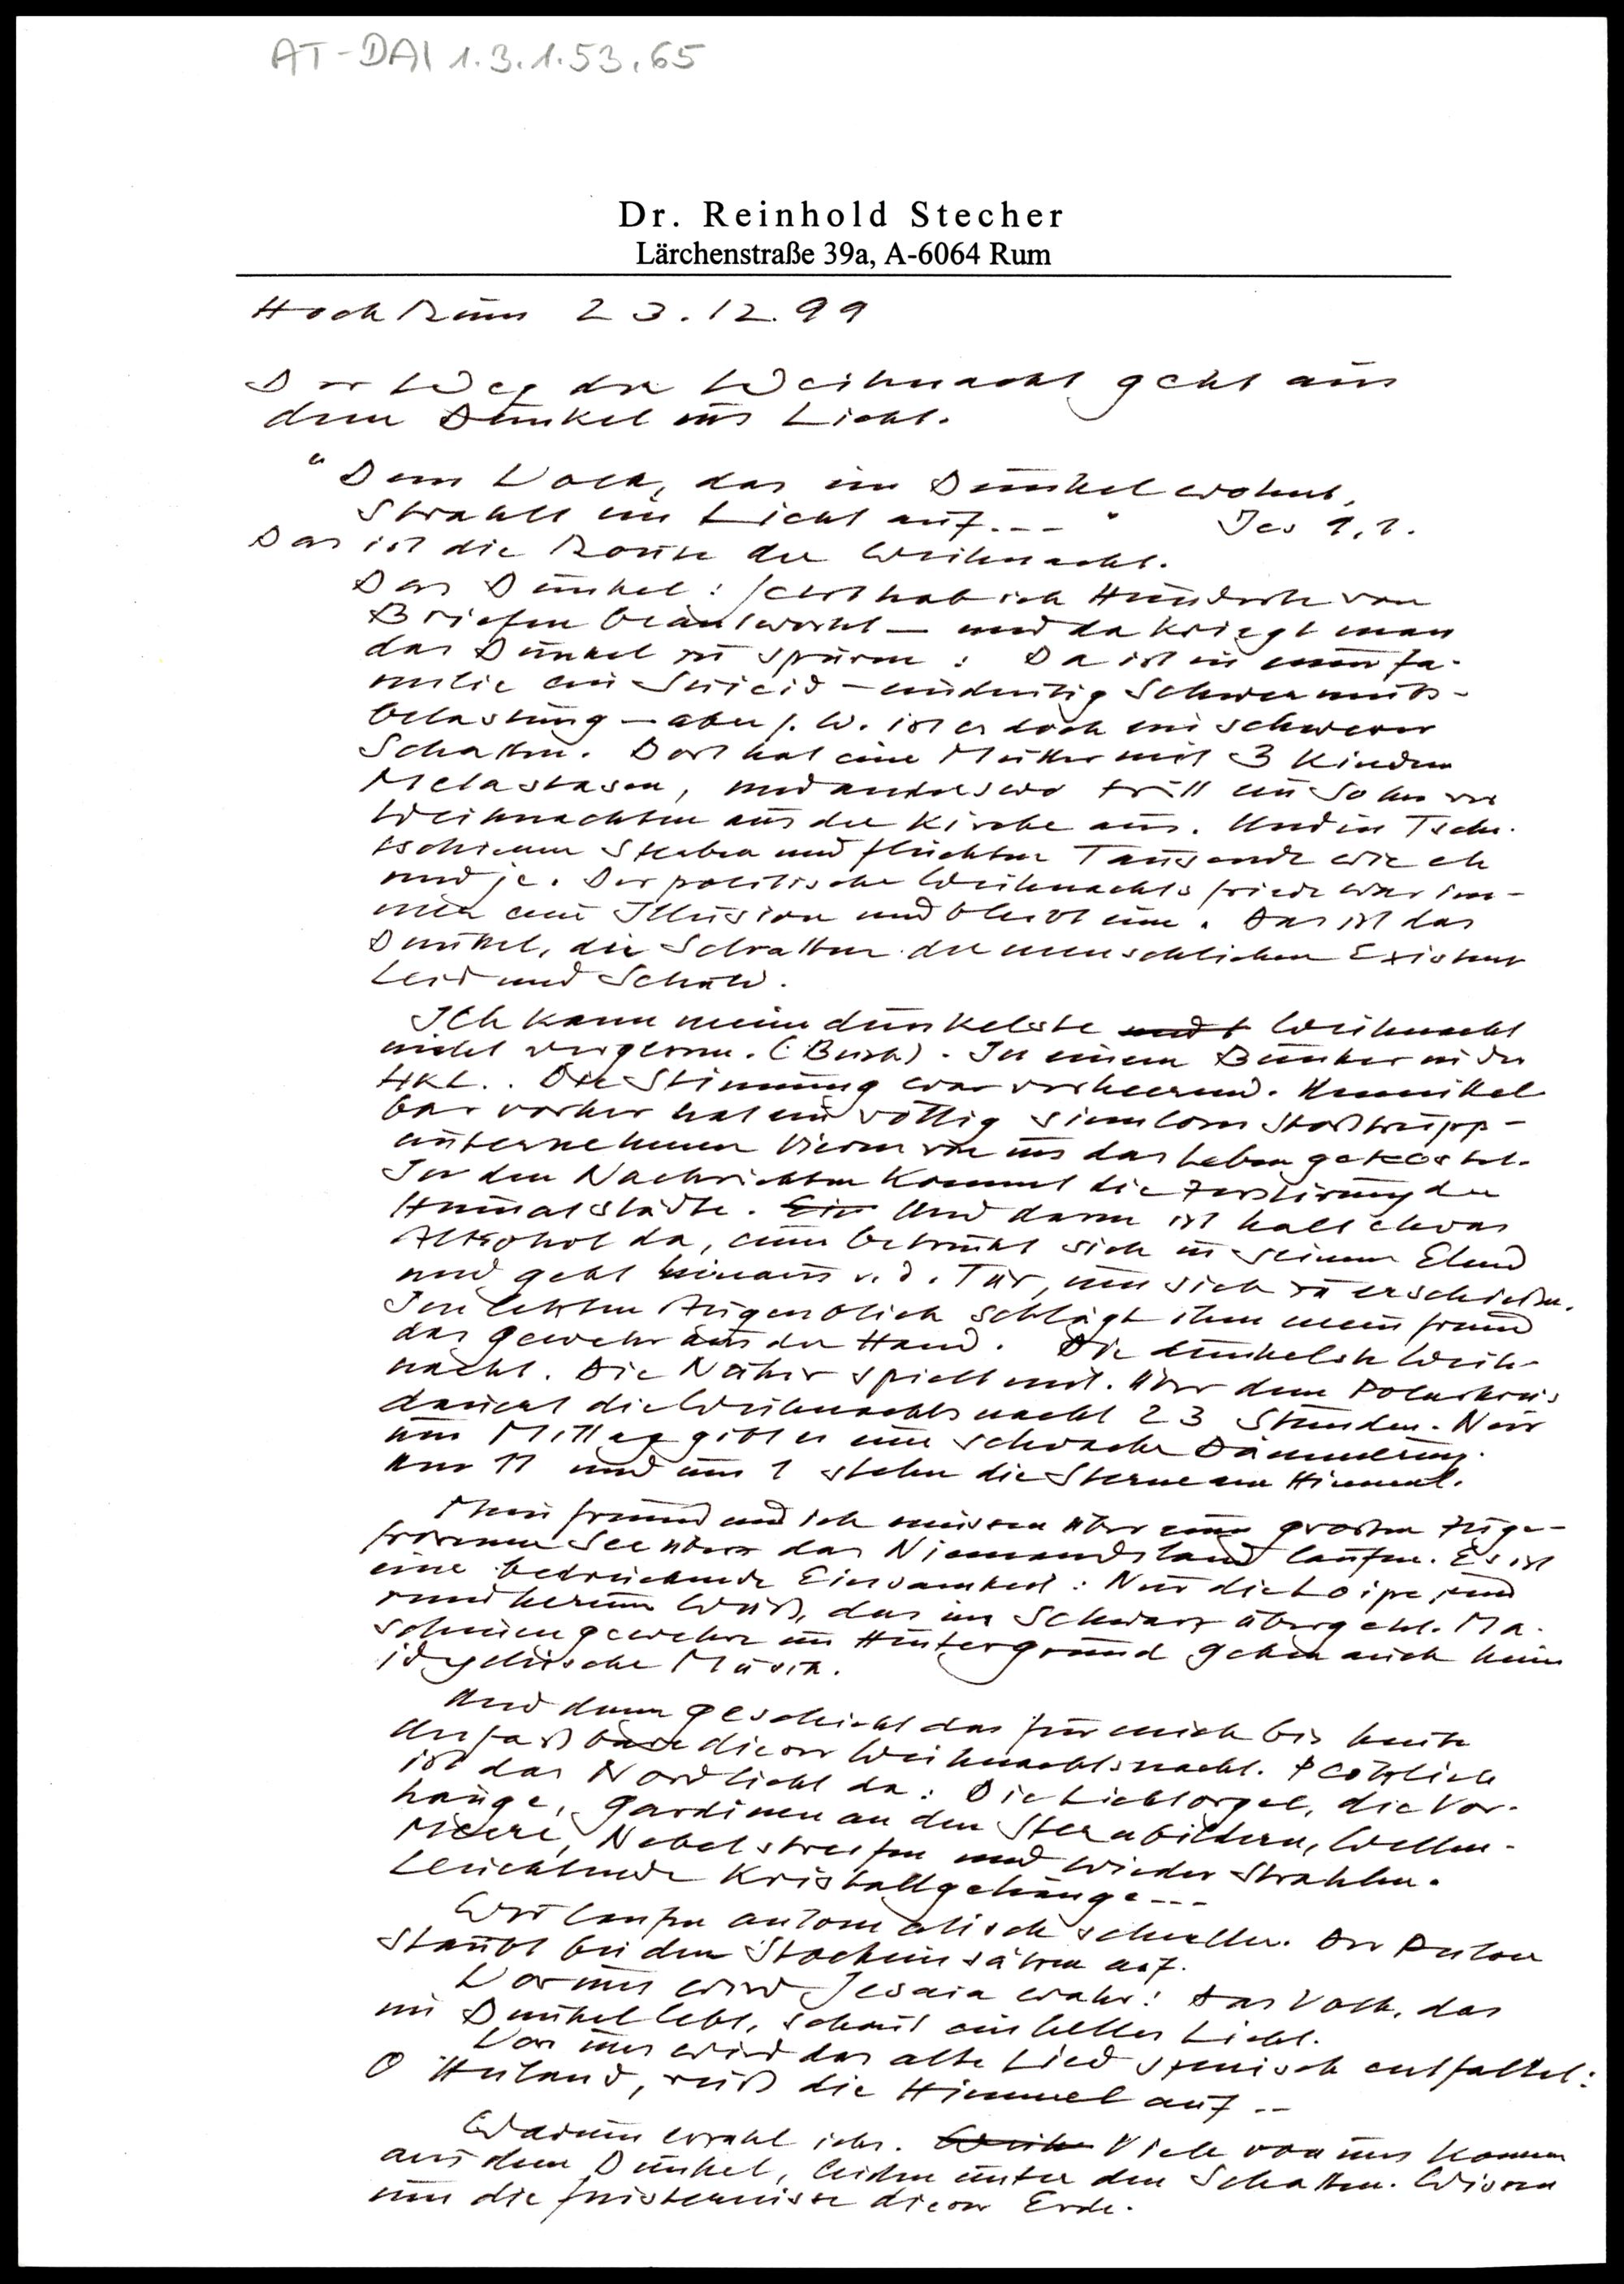 AT-DAI 1.3.1.53.65
Dr. Reinhold Stecher
Lärchenstraße 39a, A-6064 Rum
Hochrum 23.12.99
Der Weg der Weihnacht geht aus
dem Dunkel ins Licht.
"Dem Volk, das im Dunkel wohnt,
strahlt ein Licht auf..." Jes 9,1.
Das ist die Route der Weihnacht.
Das Dunkel: Jetzt hab ich Hunderte von
Briefen beantwortet – und da kriegt man
das Dunkel zu spüren: Da ist in einer Fa-
milie ein Suicid – eindeutig Schwermuts-
belastung – aber ist es doch ein schwerer
Schatten. Dort hat eine Mutter mit 3 Kindern
Metastasen, und anderswo tritt ein Sohn vor
Weihnachten aus der Kirche aus. Und in Tsche-
tschenien sterben und flüchten Tausende wie eh
und je. Der politische Weihnachtsfriede war im-
mer eine Illusion und bleibt eine. Das ist das
Dunkel, die Schatten der menschlichen Existenz
Leid und Schuld.
Ich kann meine dunkelste Weihnacht
nicht vergessen. In einem Bunker in der
HKL.. Die Stimmung war verheerend. Unmittel-
bar vorher hat ein völlig sinnloses Stoßtrupp-
unternehmen vieren von uns das Leben gekostet.
In den Nachrichten kommt die Zerstörung der
Heimatstädte. Ein Und dann ist halt etwas
Alkohol da, einer betrinkt sich in seinem Elend
und geht hinaus v. d. Tür, um sich zu erschießen.
Im letzten Augenblick schlägt ihm mein Freund
das Gewehr aus der Hand. Die dunkelste Weih-
nacht. Die Natur spielt mit. Über dem Polarkreis
dauert die Weihnachtsnacht 23 Stunden. Nur
um Mittag gibt es eine schwache Dämmerung.
Um 11 und um 1 stehen die Sterne am Himmel.
Mein Freund und ich müssen über einen großen zuge-
frorenen See über das Niemandsland laufen. Es ist
eine bedrückende Einsamkeit: Nur die Loipe, und
rundherum Weiß, das in Schwarz übergeht. Ma-
schinengewehre im Hintergrund geben auch keine
idyllische Musik.
Und dann geschieht das für mich bis heute
Unfaßbare dieser Weihnachtsnacht. Plötzlich
ist das Nordlicht da: Die Lichtorgel, die Vor-
hänge, Gardinen an den Sternbildern, Wellen-
Meere, Nebelstreifen und wieder Strahlen.
Leuchtende Kristallgehänge...
Wir laufen automatisch schneller. Der Pulver
staubt bei den Stockeinsätzen auf.
Vor uns wird Jesaia wahr: Das Volk, das
im Dunkel lebt, schaut ein helles Licht.
Vor uns wird das alte Lied szenisch entfaltet:
O Heiland, reiß die Himmel auf..
Warum erzähl ichs. Viele von uns kommen
aus dem Dunkel, leiden unter den Schatten. Wissen
um die Finsternisse dieser Erde.